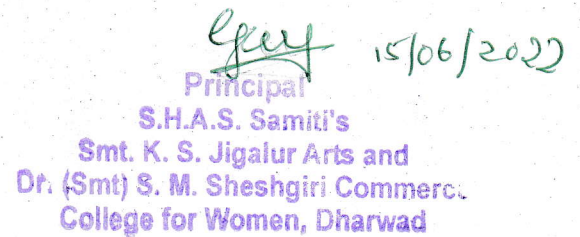 15/06/2022
Principal
S.H.A.S. Samiti's
Smt. K. S. Jigalur Arts and
Dr. (Smt) S. M. Sheshgiri Commerc..
College for Women, Dharwad